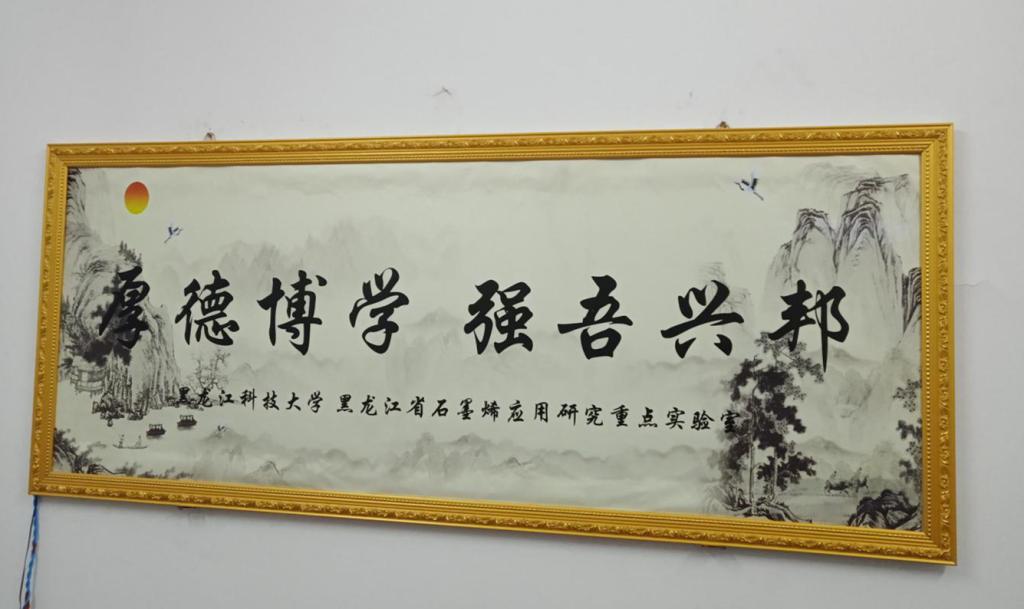 厚德博学 强吾兴邦
黑龙江科技大学 黑龙江省石墨烯应用研究重点实验室